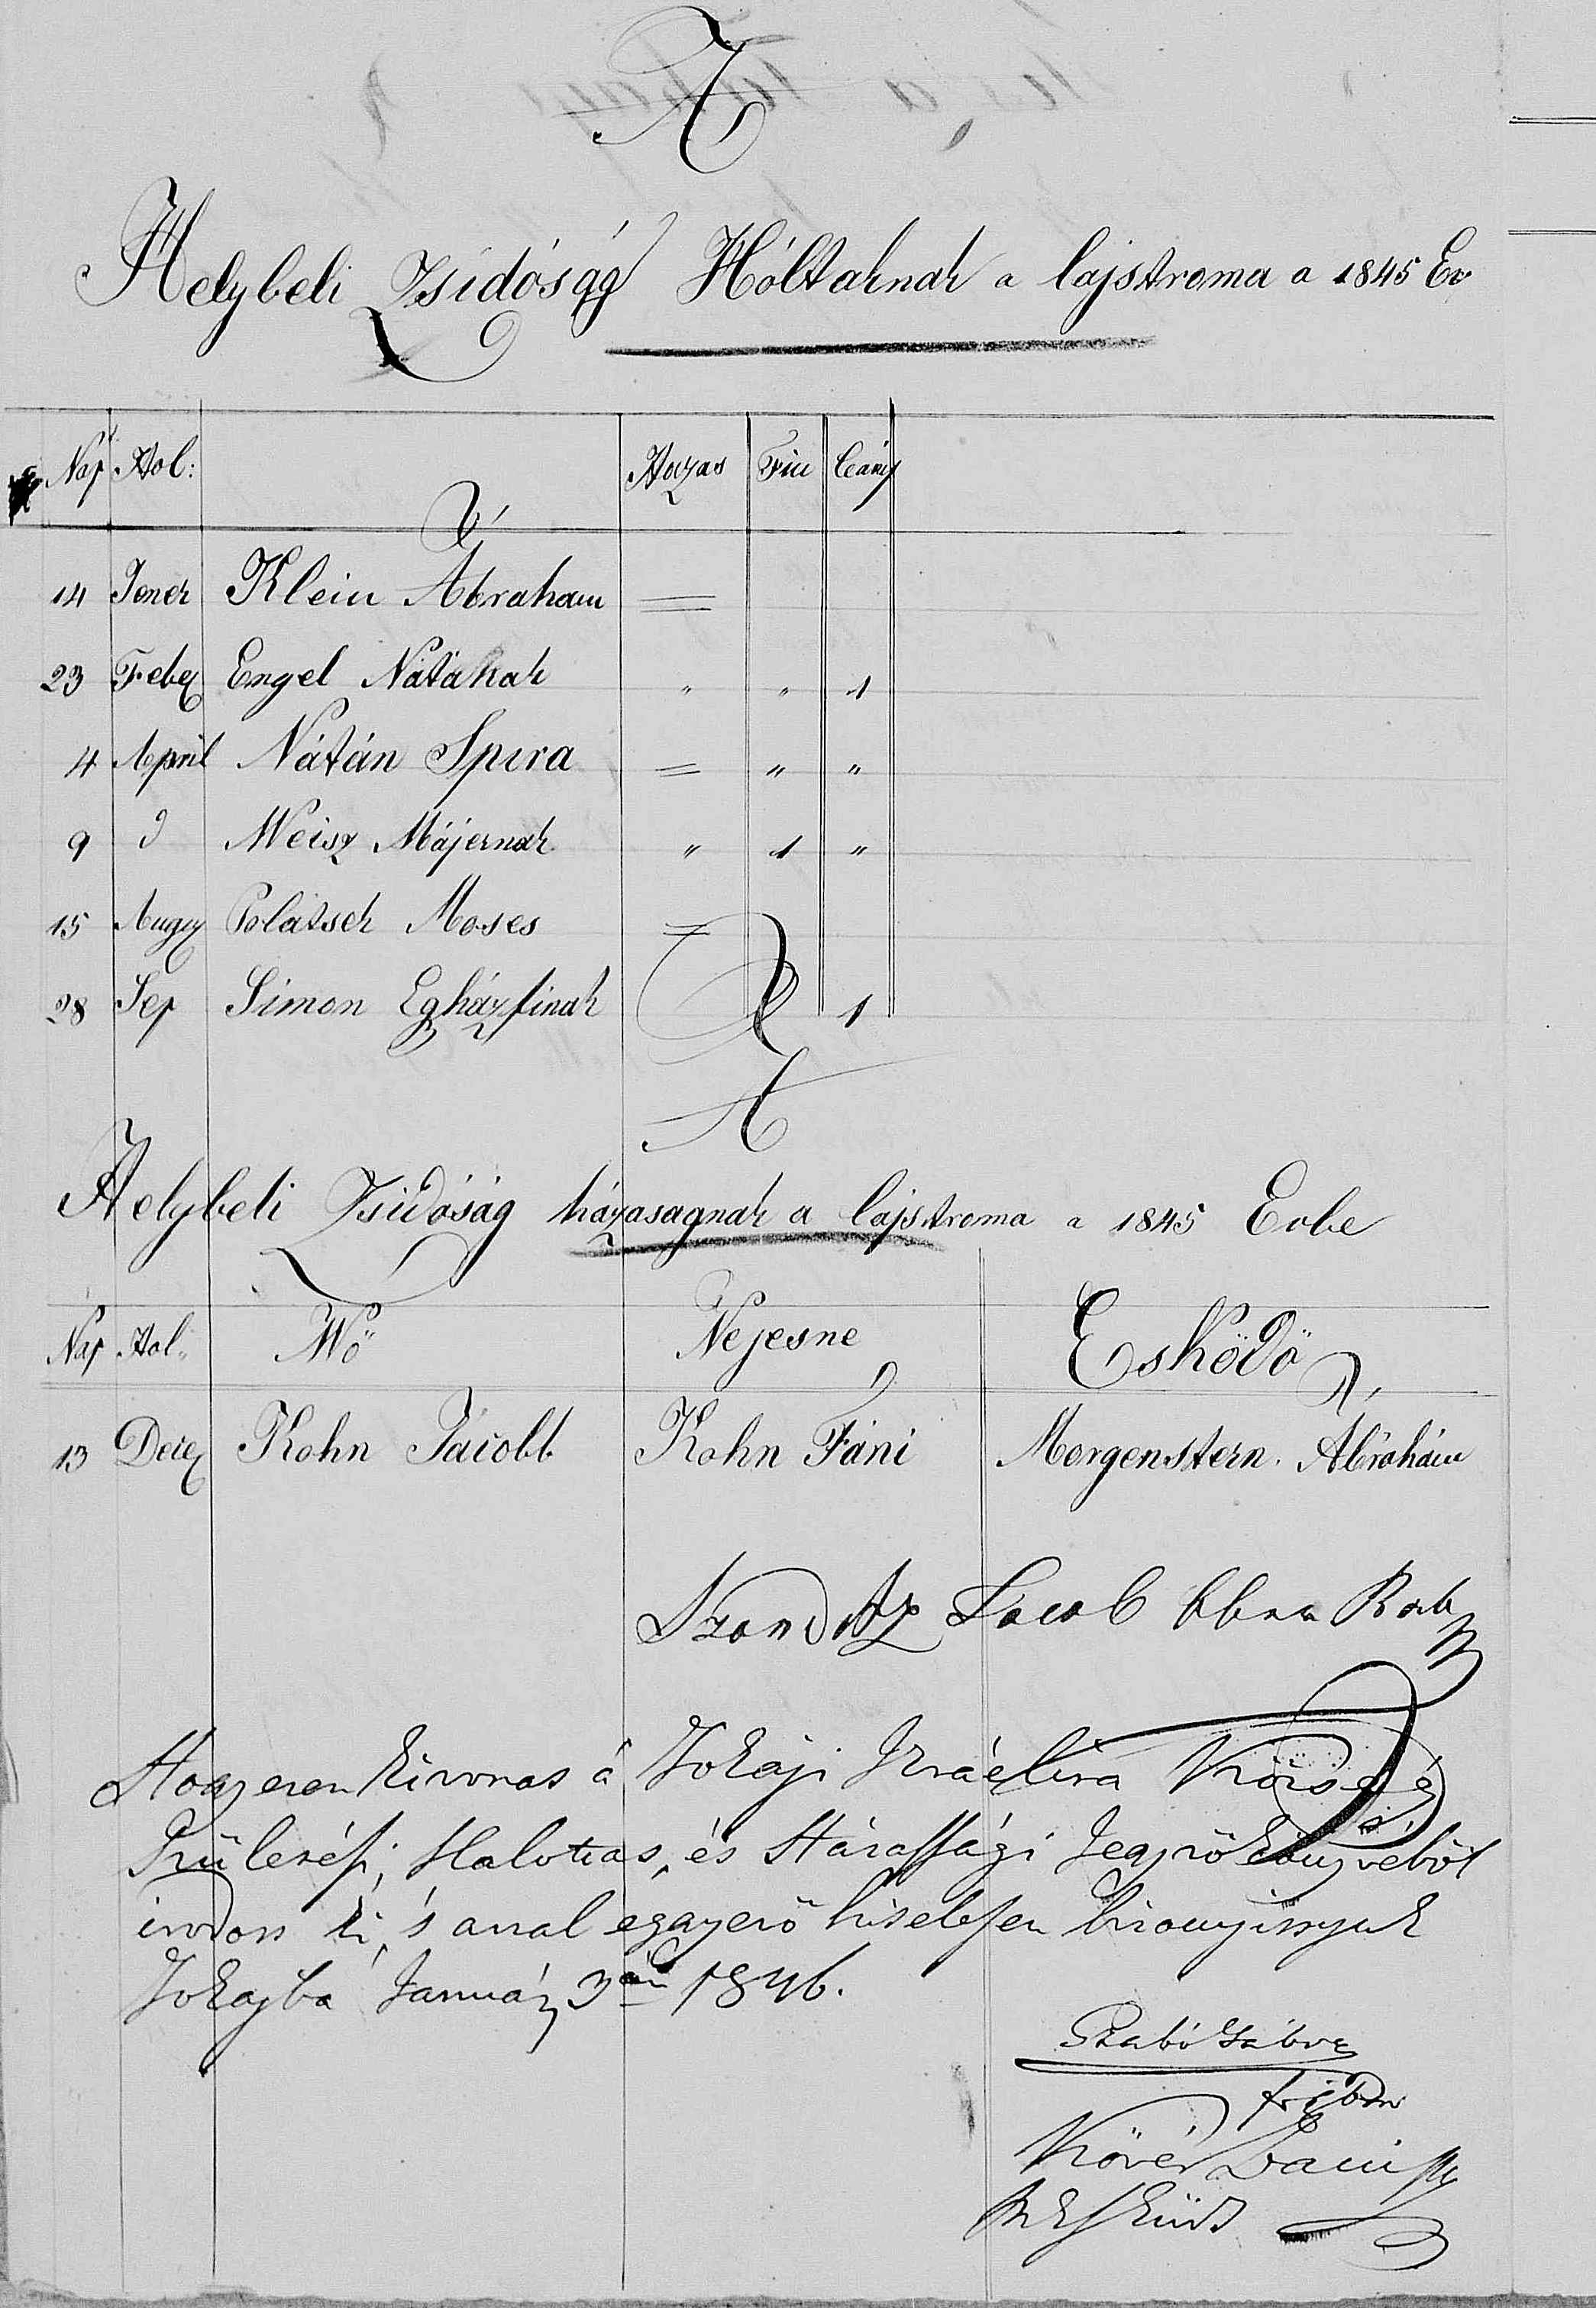 A
Helybeli Zsidóság Hóltaknak a lajstroma a 1845 Ev
Nap Hol: Hazas Fiu Leány
14 Jener Klein Abraham =
23 Feber Engel Nátáknak " " 1
4 April Nátán Spira = " "
9 d Weisz Májernak " 1 "
15 Augz Polatsek Moses =
28 Sep Simon Egházfinak 1
A
Helybeli Zsidóság házasagnak a lajstroma a 1845 Evbe
Nap Hol: Wö Nejesne Esködö
13 Decez Kohn Jacobb Kohn Fáni Morgenstern. Abrahám
Jacob Rab
Hogy ezen kivonas á Tokaji Izráelira Község
Szüleréfi, Halotras, és Házassági Jegyzökönyvéböl
irodott ki, 's azzal egyezö hitelessen bizonyittyuk
Tokajba Január 3án 1846.
Szabó Gábor
föjbíró
Kövér Dani